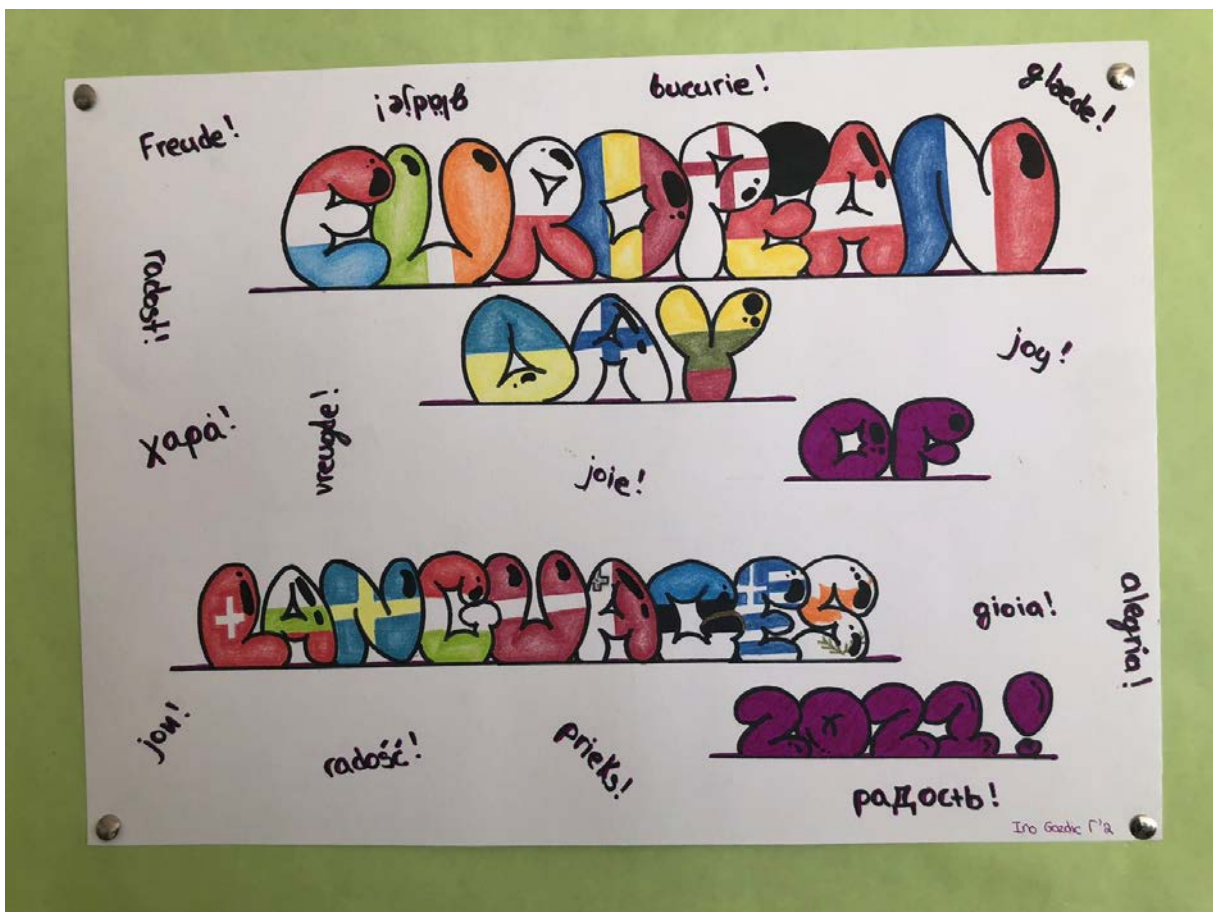 Freude!
glädje!
bucurie!
glæde!
EUROPEAN
radost!
DAY
joy!
χαρά!
vreugde!
joie!
OF
LANGUAGES
gioia!
alegria!
2021!
radość!
prieks!
радость!